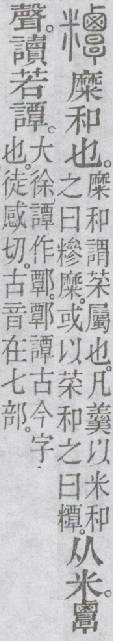 糜和也。糜和謂菜屬也。凡羹以米和
之曰糝糜。或以菜和之曰䊤。从米。𪉷
聲。讀若譚。大徐譚作𨝸。𨝸譚古今字
也。徒感切。古音在七部。